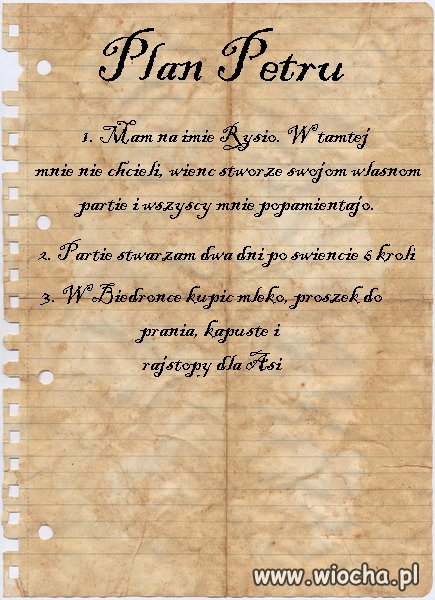 Plan Petru
1. Mam na imie Rysio. W tamtej
mnie nie chcieli, wienc stworze swojom wlasnom
partie i wszyscy mnie popamientajo.
2. Partie stwarzam dwa dni po swiencie 6 kroli
3. W Biedronce kupic mleko, proszek do
prania, kapuste i
rajstopy dla Asi
www.wiocha.pl